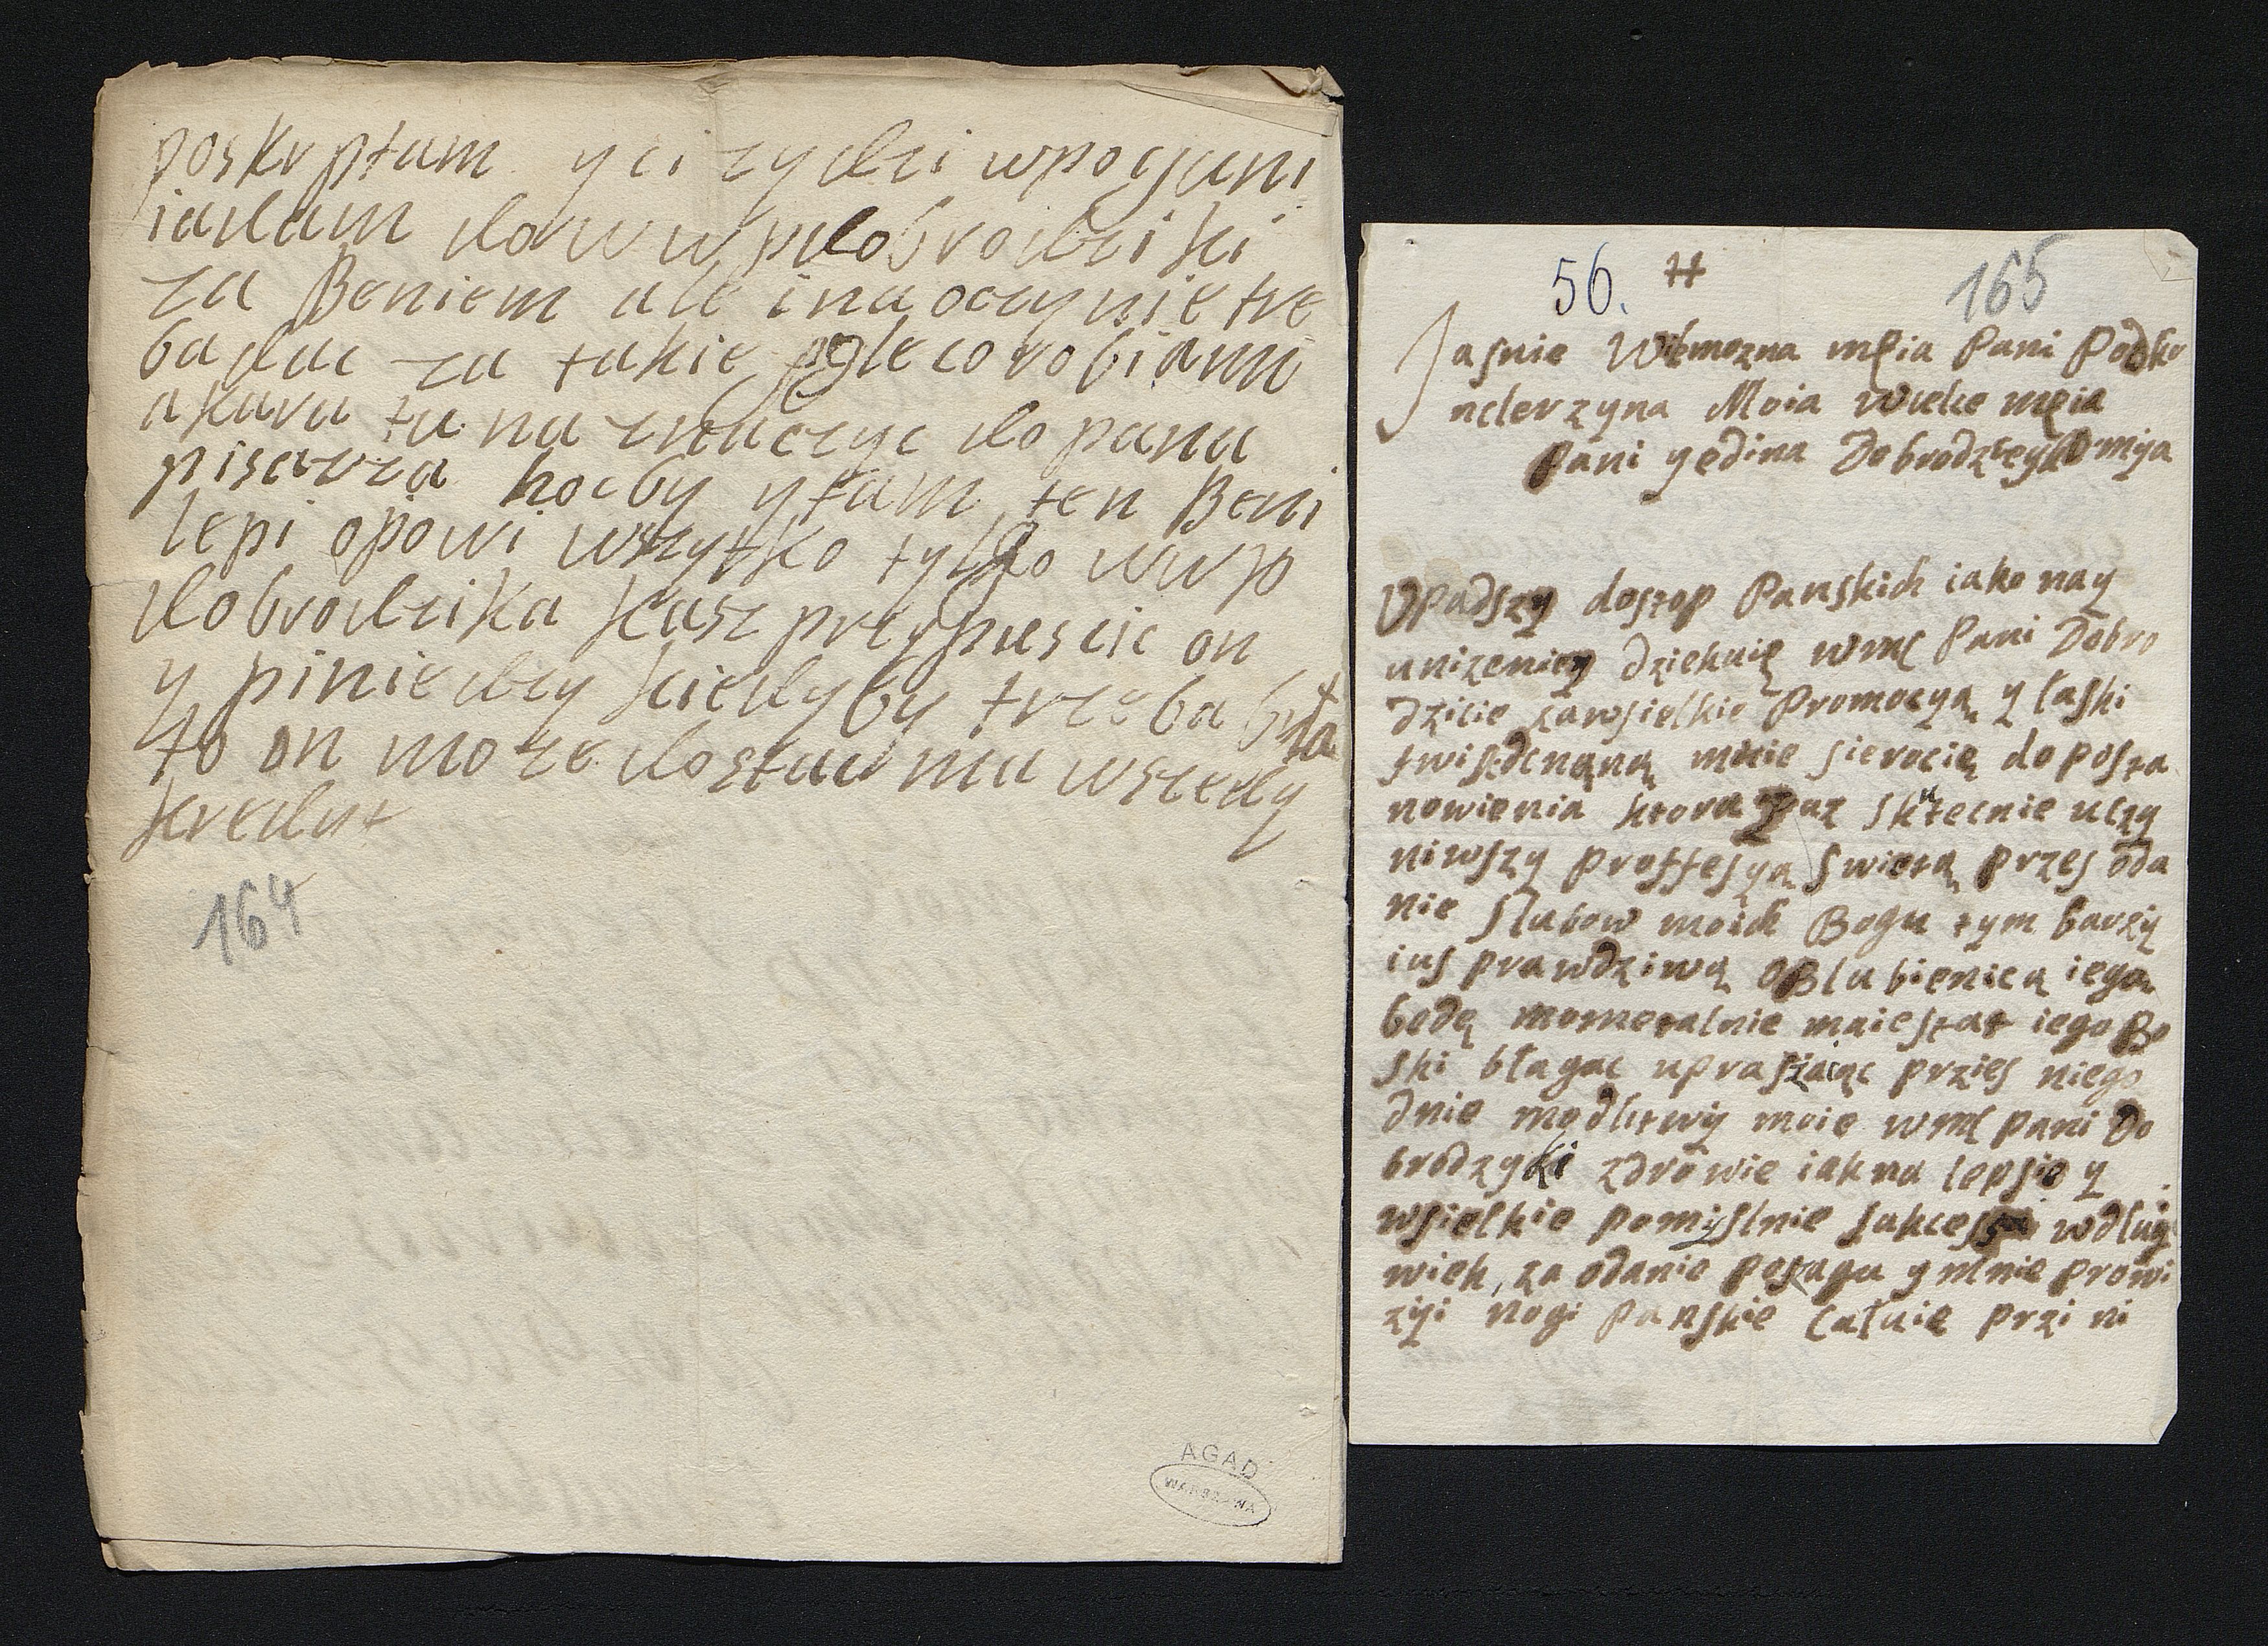 poskryptum y ci zydzi wpogani
iadam do w w p dobrodziki
za Beniem ale i na oczy nie tre
ba dac za takie zgle co robiamu
a kara tu na znaczyc do pana
pisarza hocby y tam ten Beni
lepi opowi wszytko tylko w w p
dobrodzika kasz przypuscic on
y piniedzy kiedyby trzeba była
to on moze dostac ma wszedy
kredyt
164
AGAD
WARSZAWA
56. #
165
Jasnie Wielmozna mscia Pani Podko
nclerzyna Moia wielce mscia
Pani yedina Dobrodzieyko mya
Vpadszy dostop Panskich iako nay
unizeniey dziekuię wmc Pani Dobro
dzicie zawsielkie Promocyą y łaski
swiadcnąną mnie sierocią do posta
nowienia ktora iuz skutecnie uczy
niwszy proffesyą swietą przes oda
nie slubow moich Bogu tym barzy
ius prawdziwą oblubienicą iego
bodę mometalnie maiestat iego Bo
ski błagac upraszaiąc przies niego
dnie modlitwy moie wmc pani Do
brodzyki zdrowie iak na lepsie y
wsielkie pomyslnie sukcessa wdlugi
wiek, za odanie posagu y mnie prowi
zyi nogi Panskie całuię przi ni